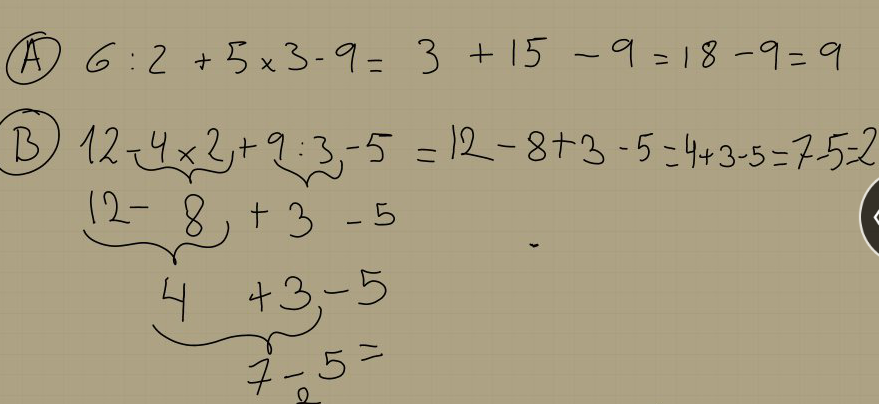 A 6 : 2 + 5 × 3 - 9 = 3 + 15 - 9 = 18 - 9 = 9
B 12 - 4 × 2 + 9 : 3 - 5 = 12 - 8 + 3 - 5 = 4 + 3 - 5 = 7 - 5 = 2
12 - 8 + 3 - 5
4 + 3 - 5
7 - 5 =